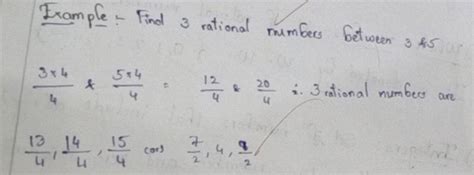 Example :- Find 3 rational numbers between 3 & 5
3×4/4 & 5×4/4 = 12/4 & 20/4 ∴ 3 rational numbers are
13/4, 14/4, 15/4 (or) 7/2, 4, 9/2